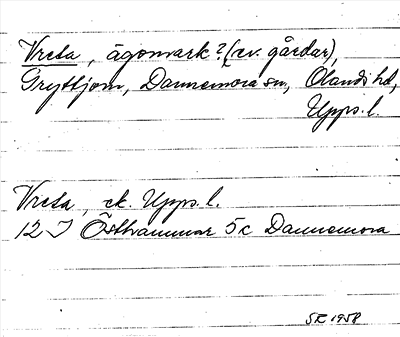 Vreta, ägomark? (ev. gårdar),
Gryttjom, Dannemora sn, Olands hd,
Upps. l.
Vreta, ek. Upps. l.
12 I Östhammar 5c Dannemora
SR 1958